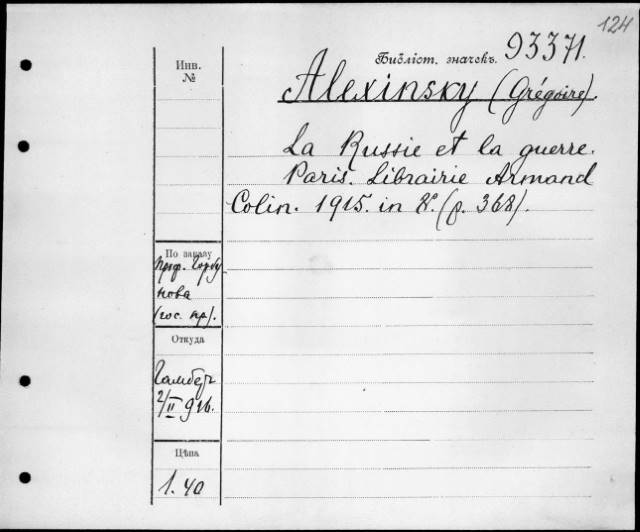 124
Библіот. значекъ. 93371.
Инв.
№
Alexinsky (Grégoire).
La Russie et la guerre.
Paris. Librairie Armand
Colin. 1915. in 8º. (p. 368).
По заказу
Проф. Горбу
нова
(гос. пр).
Откуда
Гамбер
2/II 916.
Цѣна
1.40